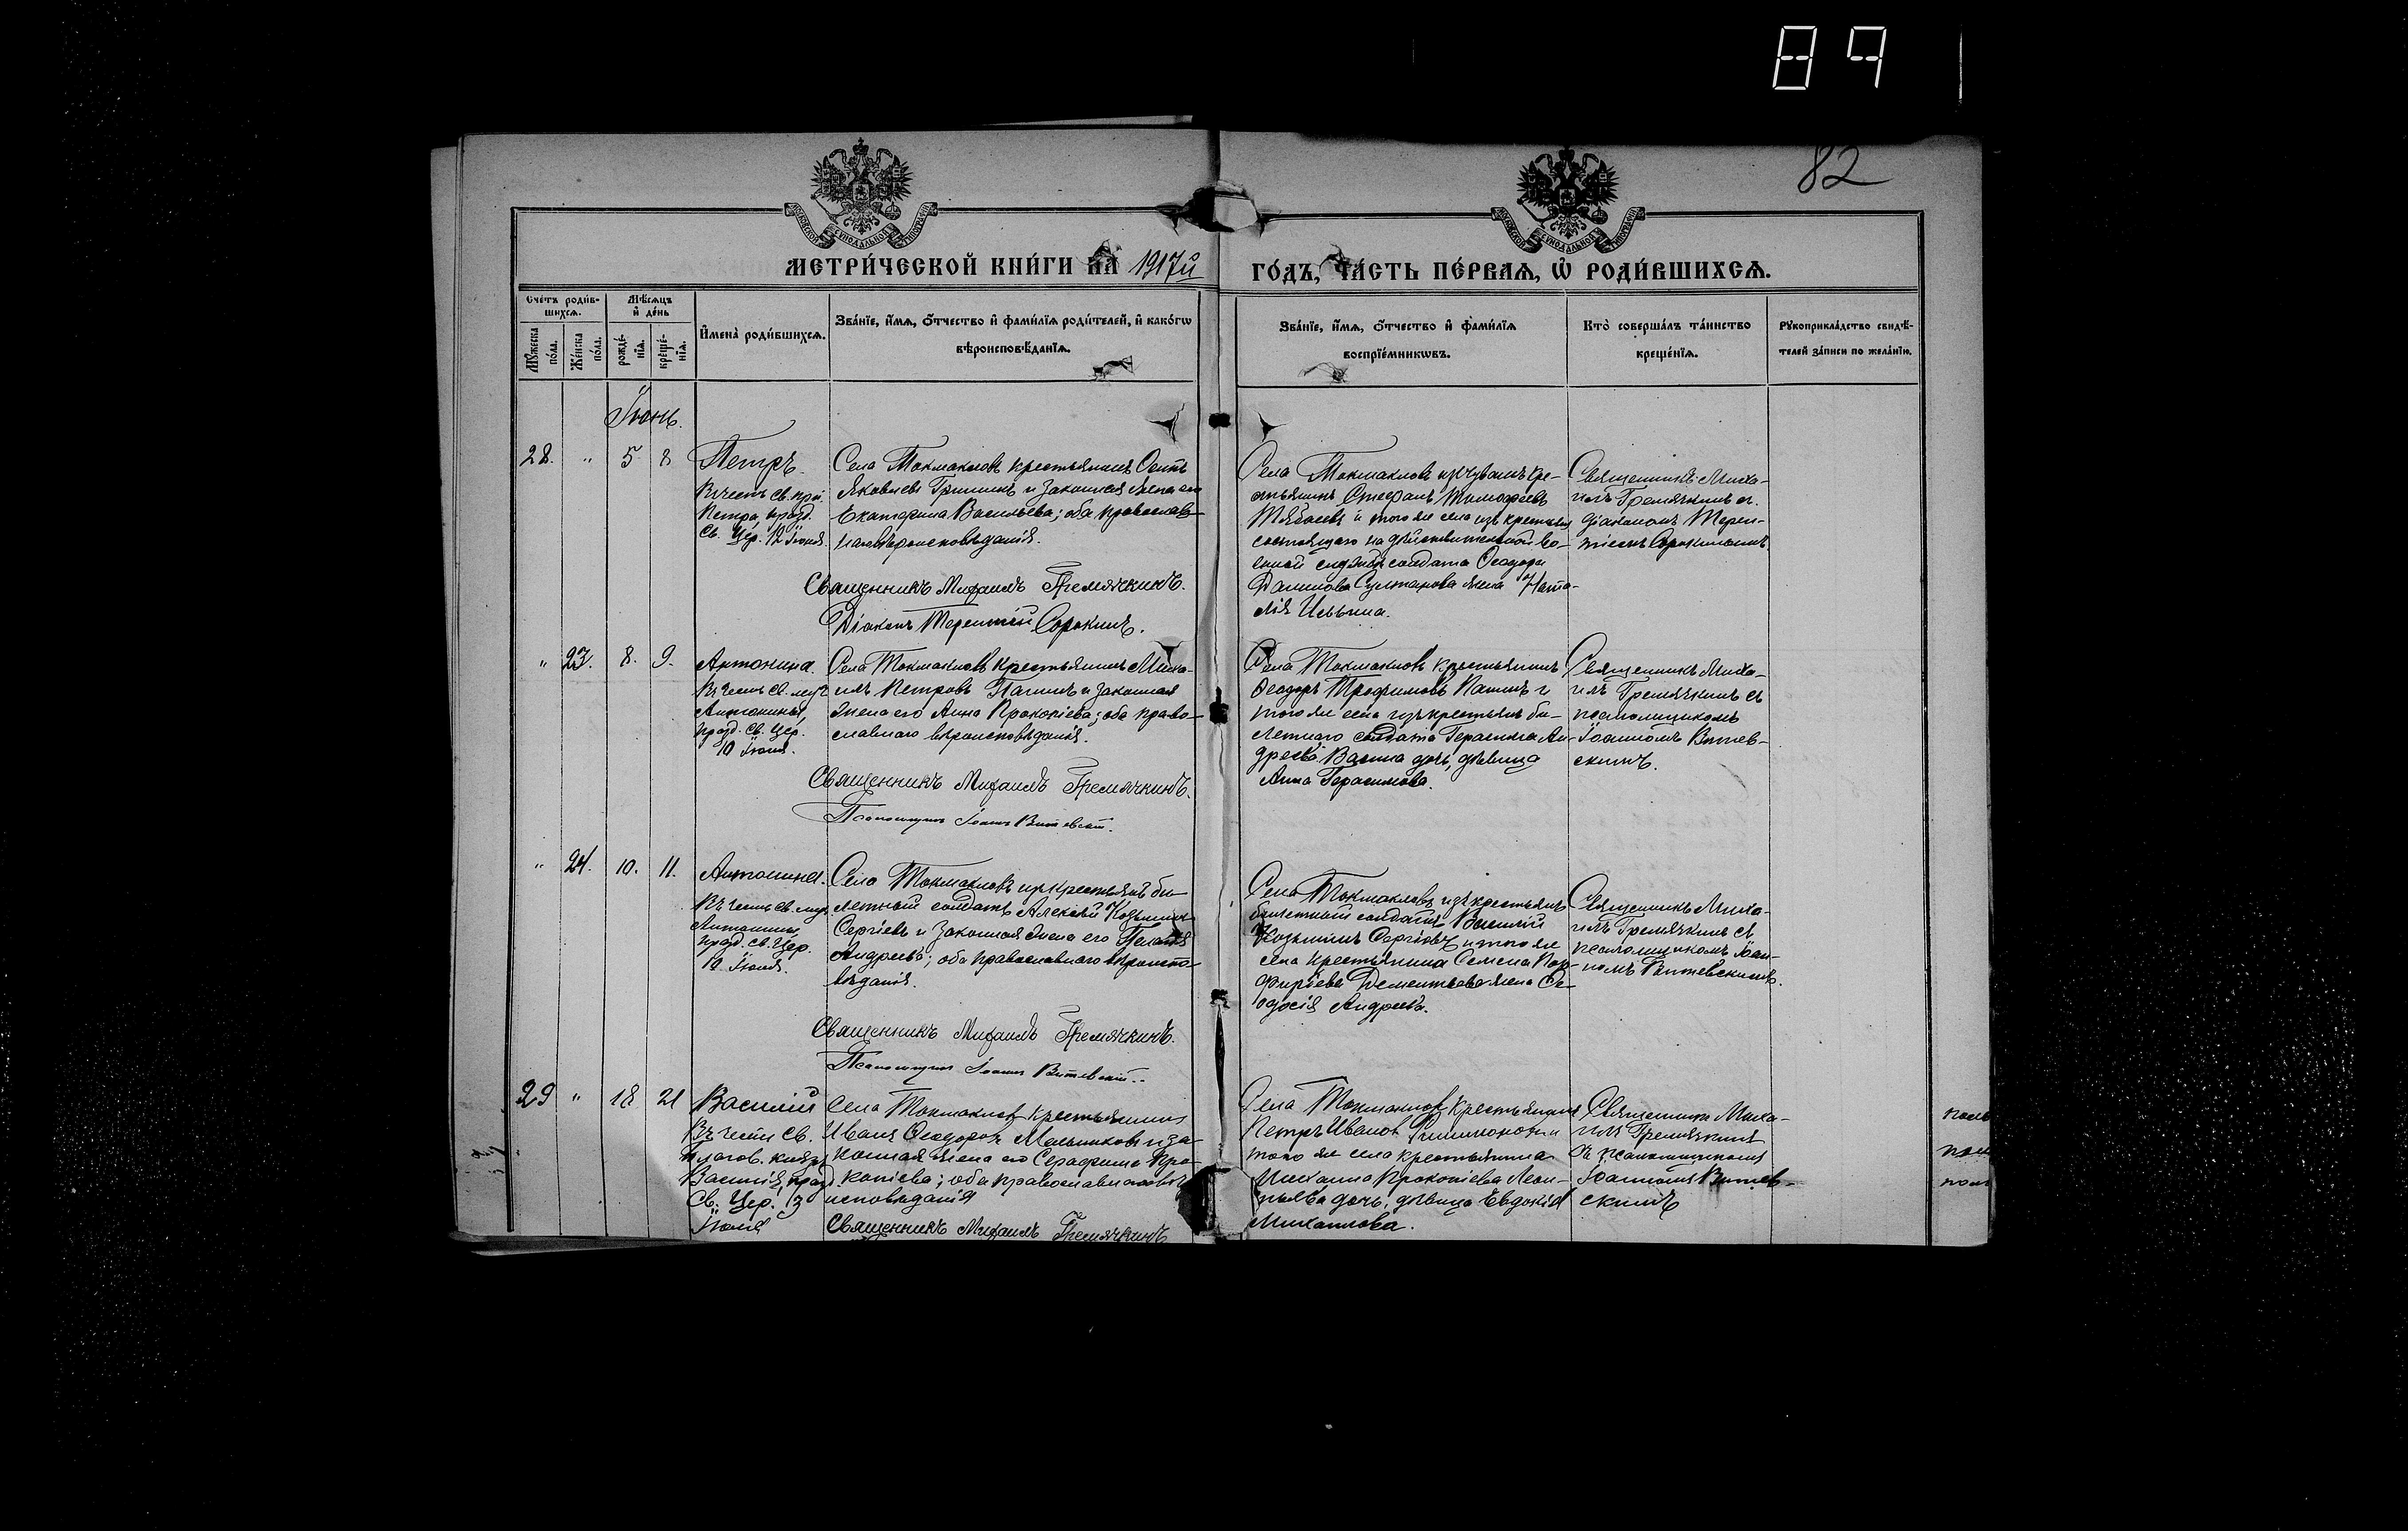 84
82
МОСКОВСКОЙ СУНОДАЛЬНОЙ ТИПОГРАФІИ
МОСКОВСКОЙ СУНОДАЛЬНОЙ ТИПОГРАФІИ
МЕТРИ́ЧЕСКОЙ КНИ́ГИ НА 1917й ГО́ДЪ, ЧА́СТЬ ПЕ́РВАЯ, Ѽ РОДИ́ВШИХСѦ.
Сче́тъ роди́в-
шихсѧ.
Мѣ́сѧцъ
и҆ де́нь
Мꙋ́жеска по́ла.
Же́нска по́ла.
рожде́-
нїѧ.
креще́-
нїѧ.
И҆мена̀ роди́вшихсѧ.
Зва́нїе, и҆́мѧ, ѻ҆́тчество и҆ фами́лїѧ роди́телей, и҆ како́гѡ
вѣроисповѣ́данїѧ.
Зва́нїе, и҆́мѧ, ѻ҆́тчество и҆ фами́лїѧ
воспрїе́мникѡвъ.
Кто̀ соверша́лъ та́инство
креще́нїѧ.
Рꙋкоприкла́дство свидѣ́-
телей за́писи по жела́нїю.
Іюнь.
28. " 5 8
Петръ.
Въ честь св. пр.
Петра, празд.
Св. Цер. 12 Іюня.
Села Токмаклов крестьянинъ
Яковлевъ Гришинъ и законная жена его
Екатерина Васильева; оба православ-
наго вѣроисповѣданія.
Священникъ Михаилъ Гремячкинъ.
Діаконъ Терентій Сорокинъ.
Села Токмаклова изъ чувашъ кре-
стьянинъ Стефанъ Тимофеевъ
и того же села изъ крестьянъ
состоящаго на дѣйствительной во-
енной службѣ солдата Ѳеодора
Данилова Султанова жена Ната-
лія Ильина.
Священникъ Миха-
илъ Гремячкинъ съ
діакономъ Терен-
тіемъ Сорокинымъ
" 23. 8. 9.
Антонина.
Въ честь св. муч.
Антонины,
празд. Св. Цер.
10 Іюня.
Села Токмакловъ крестьянинъ Миха-
илъ Петровъ Пагинъ и законная
жена его Анна Прокопіева; оба право-
славнаго вѣроисповѣданія.
Священникъ Михаилъ Гремячкинъ.
Псаломщикъ Іоаннъ Витевскій.
Села Токмакловъ крестьянинъ
Ѳеодоръ Трофимовъ Пагинъ и
того же села изъ крестьянъ би-
летнаго солдата Герасима Ан-
дреева Васина дочь, дѣвица
Анна Герасимова.
Священникъ Миха-
илъ Гремячкинъ съ
псаломщикомъ
Іоанномъ Витев-
скимъ.
" 24. 10. 11.
Антонина.
Въ честь св. муч.
Антонины,
празд. св. Цер.
10 Іюня.
Села Токмакловъ изъ крестьянъ би-
летный солдатъ Алексѣй Козьминъ
Сергіевъ и законная жена его Пелагія
Андреева; оба православнаго вѣроиспо-
вѣданія.
Священникъ Михаилъ Гремячкинъ.
Псаломщикъ Іоаннъ Витевскій.
Села Токмакловъ изъ крестьянъ
билетный солдатъ Василій
Козьминъ Сергіевъ и того же
села крестьянина Семена Пор-
фиріева Дементьева жена Ѳе-
одосія Андреева.
Священникъ Миха-
илъ Гремячкинъ съ
псаломщикомъ Іоан-
номъ Витевскимъ.
29 " 18 21
Василій
Въ честь св.
благов. князя
Василія, празд.
Св. Цер. 3
Іюля
Села Токмаклов крестьянинъ
Иванъ Ѳеодоровъ Мельниковъ и за-
конная жена его Серафима Про-
копіева; оба православнаго вѣро-
исповѣданія
Священникъ Михаилъ Гремячкинъ
Села Токмаклов крестьянинъ
Петръ Ивановъ Филимоновъ и
того же села крестьянина
Михаила Прокопіева Леон-
тьева дочь, дѣвица Евдокія
Михаилова.
Священникъ Миха-
илъ Гремячкинъ
съ псаломщикомъ
Іоанномъ Витев-
скимъ